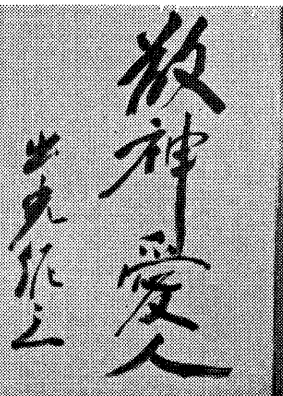 敬神愛人
出光佐三